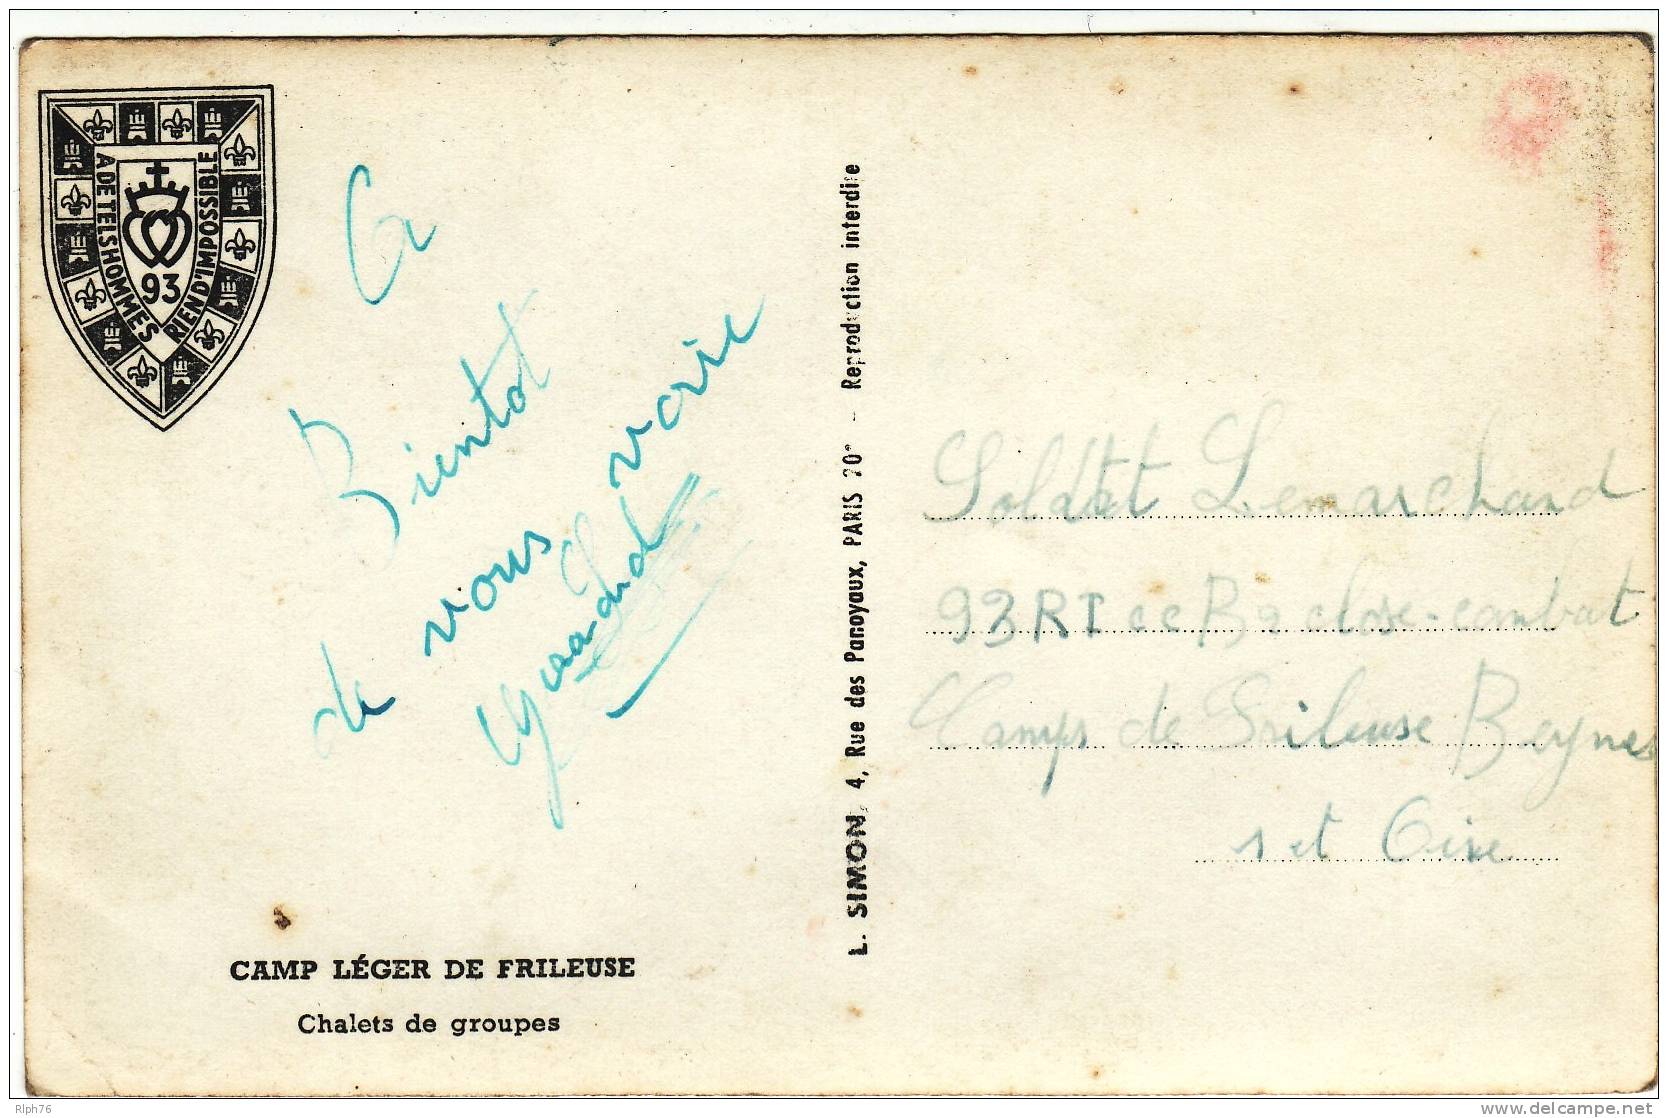 A DE TELS HOMMES
RIEN D'IMPOSSIBLE
93
A
Bientot
de vous voir
CAMP LÉGER DE FRILEUSE
Chalets de groupes
L. SIMON, 4, Rue des Panoyaux, PARIS 20e - Reproduction interdite
Soldat Lemarchand
93 RI
Camps de Frileuse Beynes
s et Oise
Rlph76
delcampe.net